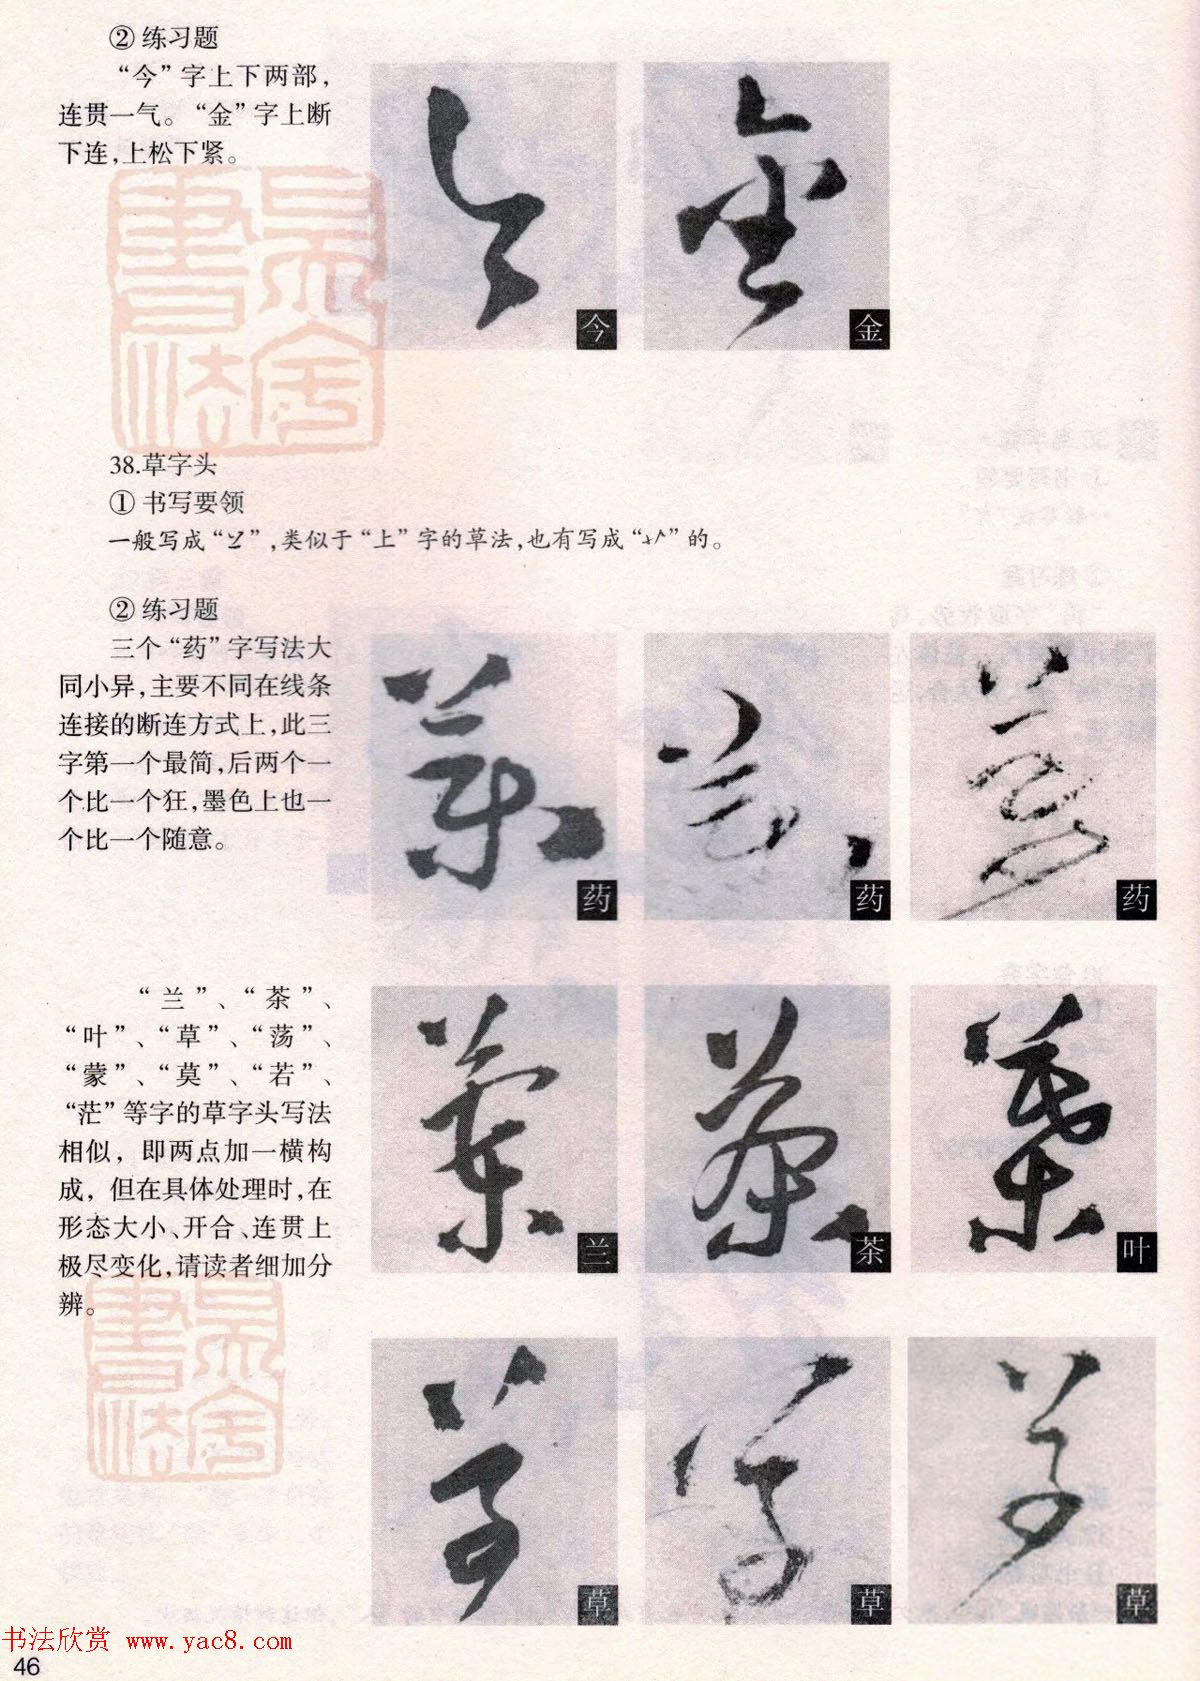 ② 练习题
“今”字上下两部，
连贯一气。“金”字上断
下连，上松下紧。
今
金
38.草字头
① 书写要领
一般写成“”，类似于“上”字的草法，也有写成“”的。
② 练习题
三个“药”字写法大
同小异，主要不同在线条
连接的断连方式上，此三
字第一个最简，后两个一
个比一个狂，墨色上也一
个比一个随意。
药
药
药
“兰”、“茶”、
“叶”、“草”、“荡”、
“蒙”、“莫”、“若”、
“茫”等字的草字头写法
相似，即两点加一横构
成，但在具体处理时，在
形态大小、开合、连贯上
极尽变化，请读者细加分
辨。
兰
茶
叶
草
草
草
书法欣赏 www.yac8.com
46